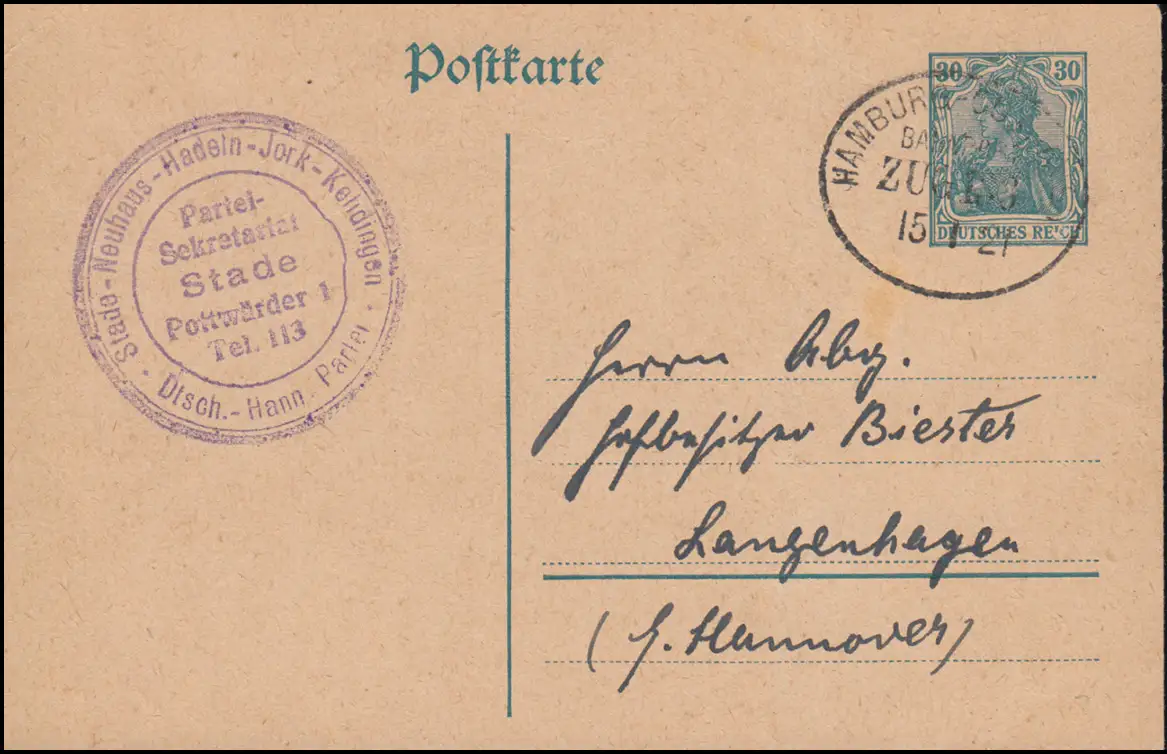 Postkarte
30 30
DEUTSCHES REICH
HAMBURG
ZUG
15 1 21
Stade-Neuhaus-Hadeln-Jork-Kehdingen
Dtsch.-Hann. Partei
Partei-
Sekretariat
Stade
Pottwärder 1
Tel. 113
Herrn Abg.
Hofbesitzer Biester
Langenhagen
Hannover)